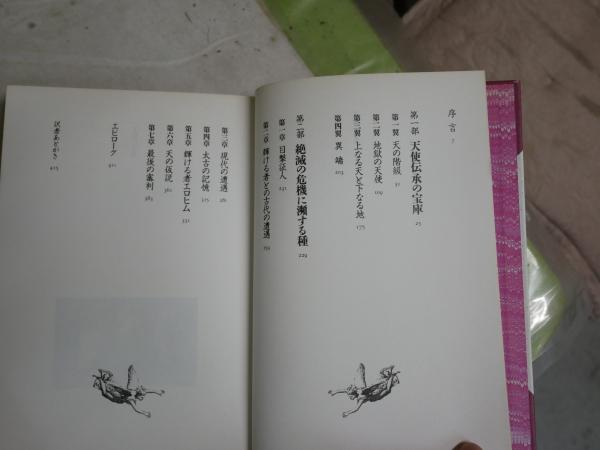 序言 7
第一部 天使伝承の宝庫 25
第一翼 天の階級 31
第二翼 地獄の天使 109
第三翼 上なる天と下なる地 175
第四翼 異端 203
第二部 絶滅の危機に瀕する種 229
第一章 目撃証人 231
第二章 輝ける者との古代の遭遇 259
第三章 現代の遭遇 281
第四章 太古の記憶 315
第五章 輝ける者エロヒム 331
第六章 天の仮説 361
第七章 最後の審判 383
エピローグ
訳者あとがき 425